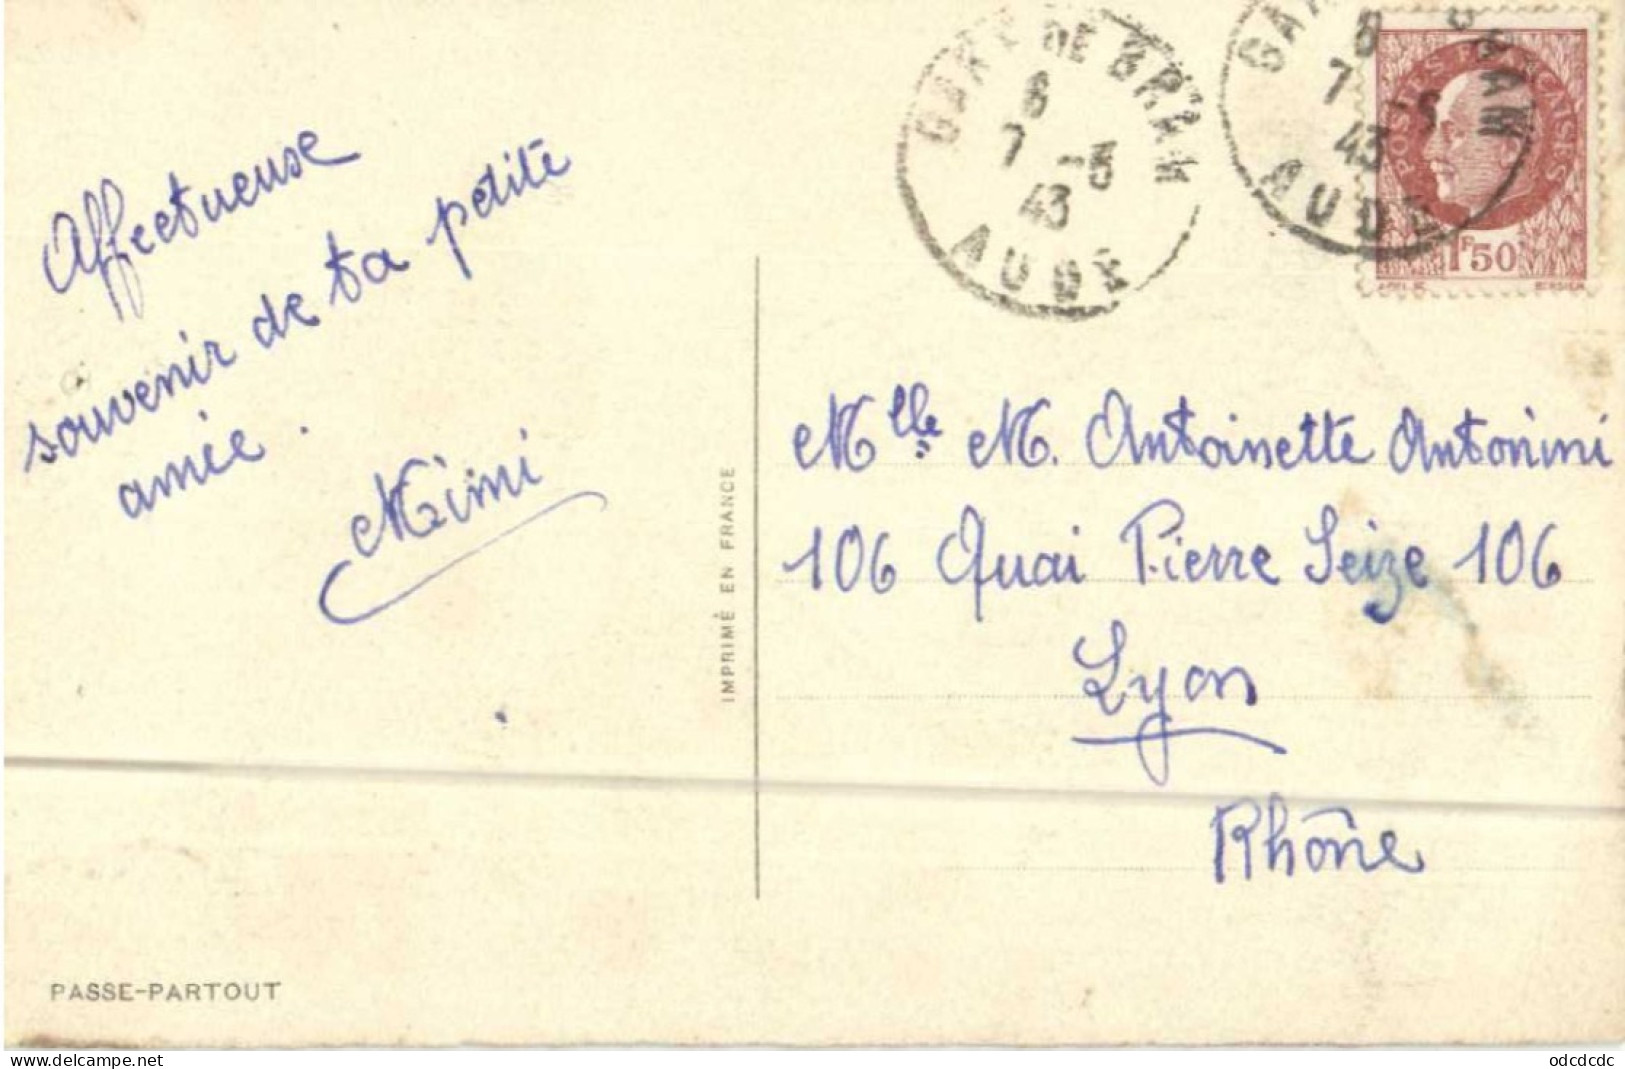 Affectueuse
souvenir de ta petite
amie.
Mimi
IMPRIMÉ EN FRANCE
PASSE-PARTOUT
GARE DE BRAM
6
7 -5
43
AUDE
6
7 -5
43
AUDE
POSTES FRANÇAISES
1F50
Mlle M. Antoinette Antonini
106 Quai Pierre Seize 106
Lyon
Rhône
odcdcdc